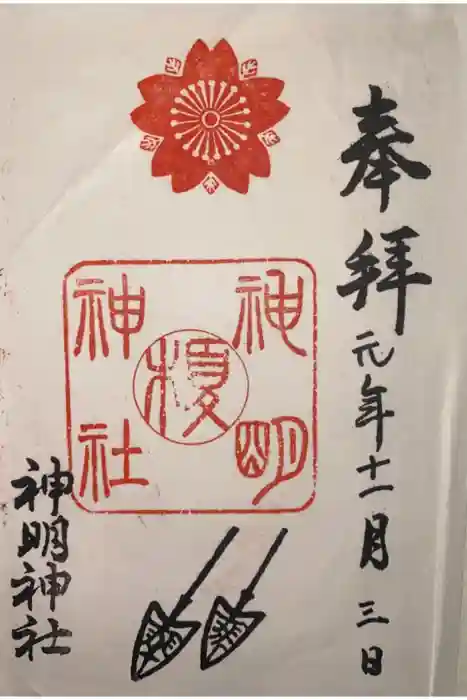 奉拝
元年十一月三日
神明
神社
榎
神明神社